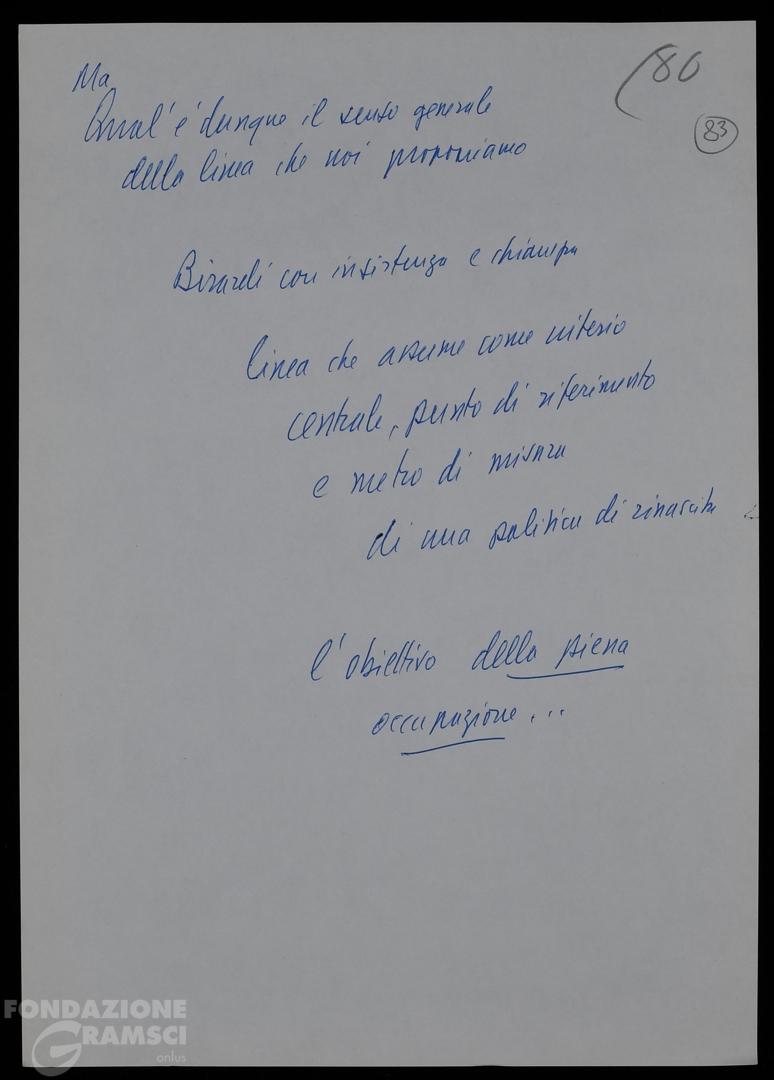 (80
83
Ma
Qual'è dunque il senso generale
della linea che noi proponiamo
Birardi con insistenza e chiarezza
linea che assume come criterio
centrale, punto di riferimento
e metro di misura
di una politica di rinascita
l'obiettivo della piena
occupazione...
FONDAZIONE
GRAMSCI
onlus